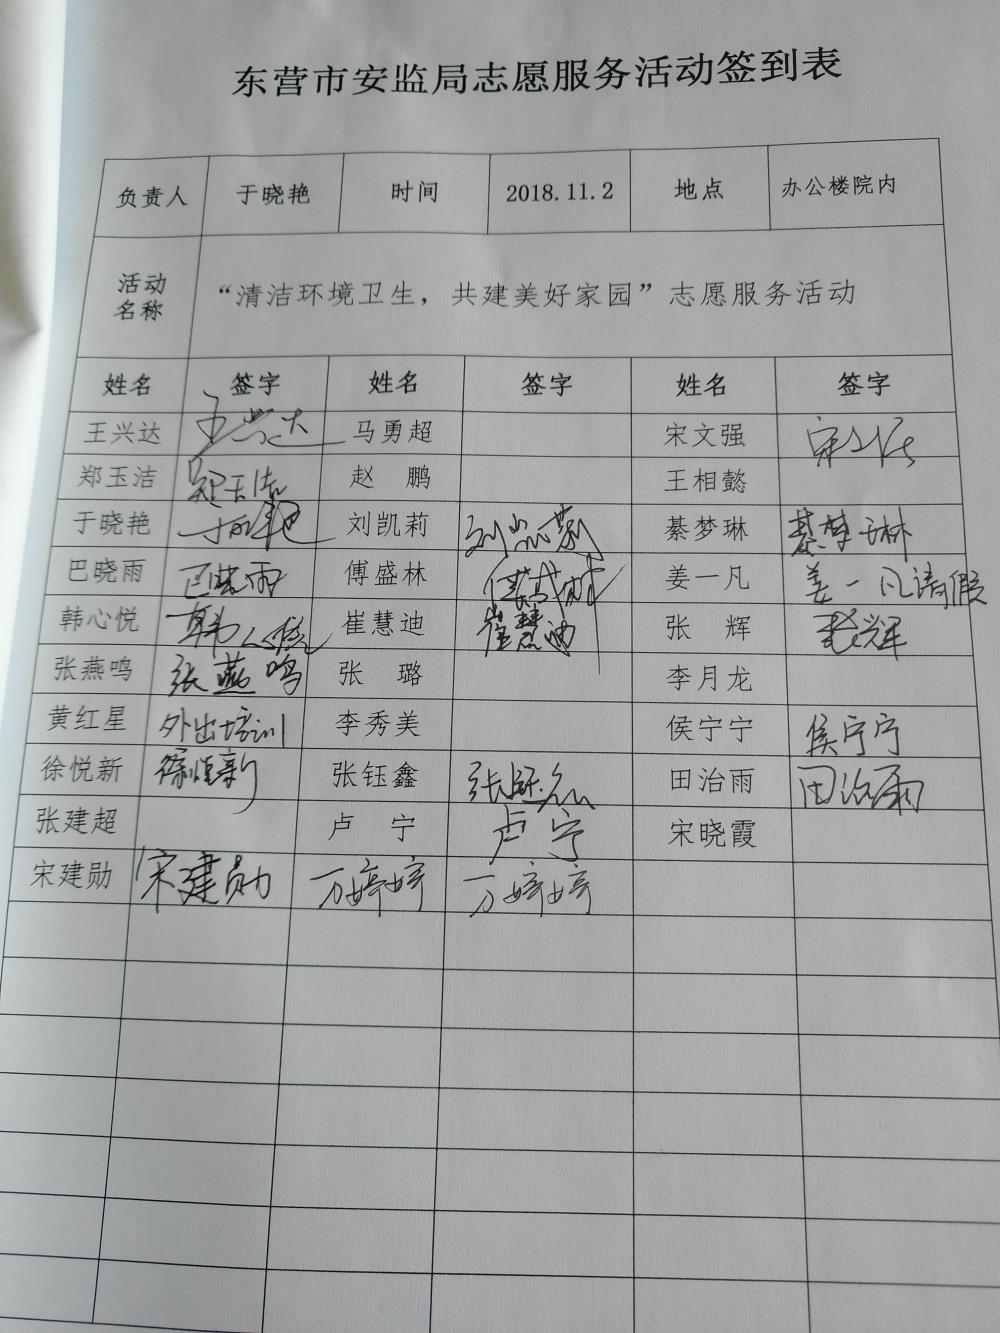 东营市安监局志愿服务活动签到表
负责人 于晓艳 时间 2018.11.2 地点 办公楼院内
活动名称 “清洁环境卫生，共建美好家园”志愿服务活动
姓名 签字 姓名 签字 姓名 签字
王兴达 王兴达 马勇超 宋文强 宋文强
郑玉洁 郑玉洁 赵 鹏 王相懿
于晓艳 于晓艳 刘凯莉 刘凯莉 綦梦琳 綦梦琳
巴晓雨 巴晓雨 傅盛林 傅盛林 姜一凡 姜一凡请假
韩心悦 韩心悦 崔慧迪 崔慧迪 张 辉 张辉
张燕鸣 张燕鸣 张 璐 李月龙
黄红星 外出培训 李秀美 侯宁宁 侯宁宁
徐悦新 徐悦新 张钰鑫 张钰鑫 田治雨 田治雨
张建超 卢 宁 卢宁 宋晓霞
宋建勋 宋建勋 万婷婷 万婷婷